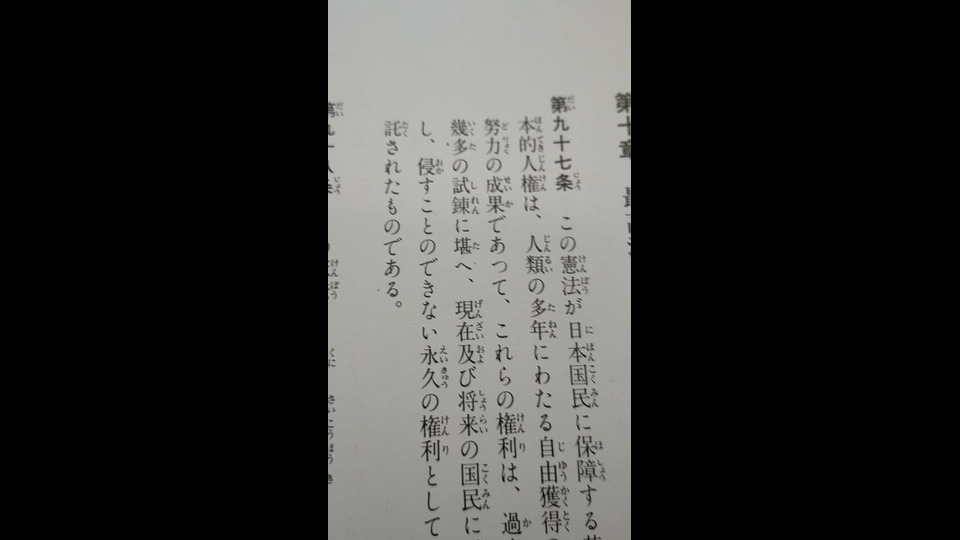 第十章
第九十七条 この憲法が日本国民に保障する
本的人権は、人類の多年にわたる自由獲得
努力の成果であつて、これらの権利は、過
幾多の試錬に堪へ、現在及び将来の国民に
し、侵すことのできない永久の権利として
託されたものである。